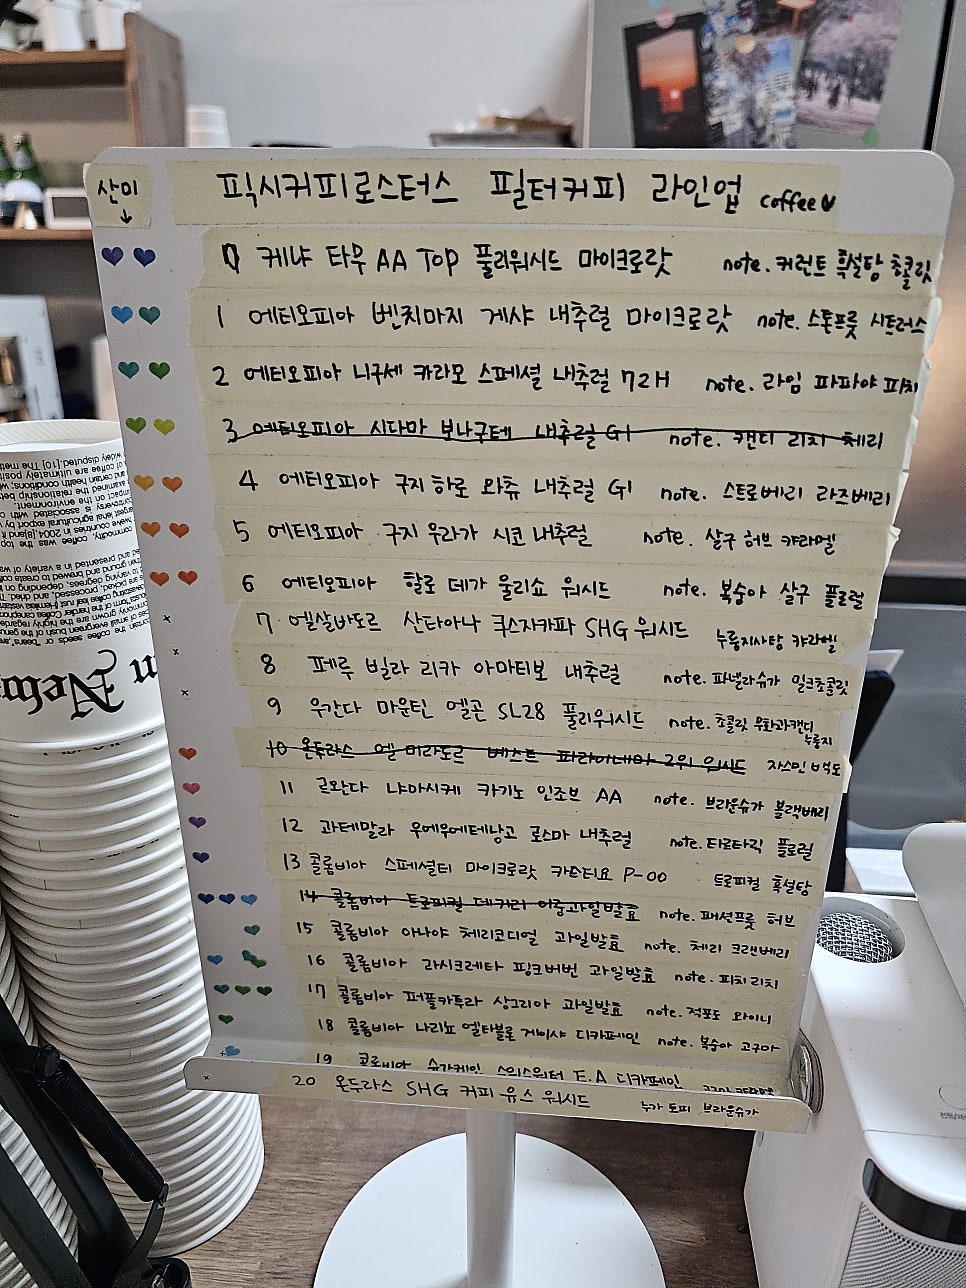 산미
↓
픽시커피로스터스 필터커피 라인업 coffee♥
0 케냐 타무 AA TOP 풀리워시드 마이크로랏 note. 커런트 흑설탕 초콜릿
1 에티오피아 벤치마지 게샤 내추럴 마이크로랏 note. 스톤프룻 시트러스
2 에티오피아 니구세 카라모 스페셜 내추럴 72H note. 라임 파파야 피치
3 에티오피아 시다마 보나구테 내추럴 G1 note. 캔디 리치 체리
4 에티오피아 구지 함로 와츄 내추럴 G1 note. 스트로베리 라즈베리
5 에티오피아 구지 우라가 시코 내추럴 note. 살구 허브 캬라멜
6 에티오피아 할로 데가 울리쇼 워시드 note. 복숭아 살구 플로럴
7 엘살바도르 산타아나 쿡스자카파 SHG 워시드 누룽지사탕 캬라멜
8 페루 빌라 리카 아마티보 내추럴 note. 파넬라슈가 밀크초콜릿
9 우간다 마운틴 엘곤 SL28 풀리워시드 note. 초콜릿 무화과캔디 누룽지
10 온두라스 엘 미라도르 베스트 파라이네마 2위 워시드 자스민 포도
11 르완다 냐마시케 카기노 인조브 AA note. 브라운슈가 블랙베리
12 과테말라 우에우에테낭고 로스마 내추럴 note. 타르타릭 플로럴
13 콜롬비아 스페셜티 마이크로랏 카스티요 P-00 트로피컬 흑설탕
14 콜롬비아 트로피컬 데커리 이중과일발효 note. 패션프룻 허브
15 콜롬비아 아나야 체리코디얼 과일발효 note. 체리 크랜베리
16 콜롬비아 라시크레타 핑크버번 과일발효 note. 피치 리치
17 콜롬비아 퍼플카투라 상그리아 과일발효 note. 적포도 와이니
18 콜롬비아 나리뇨 엘타블로 게이샤 디카페인 note. 복숭아 고구마
19 콜롬비아 슈가케인 스위스워터 E.A 디카페인
20 온두라스 SHG 커피 유스 워시드 누가 토피 브라운슈가